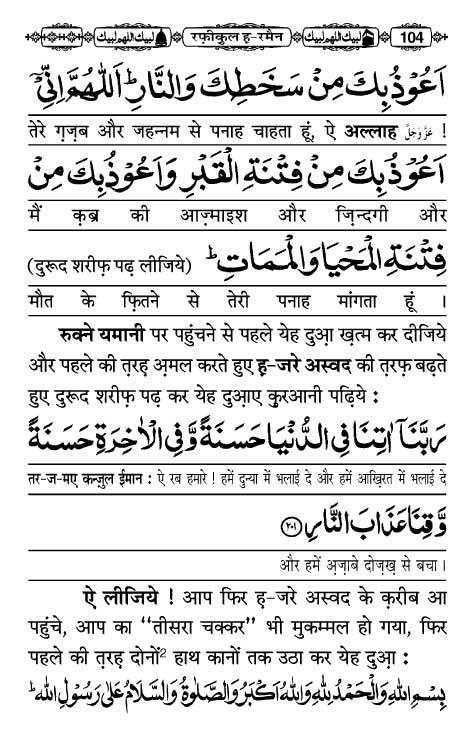 لبيك اللهم لبيك रफ़ीकुल ह-रमैन لبيك اللهم لبيك 104
اَعُوْذُ بِكَ مِنْ سَخَطِكَ وَالنَّارِ ؕ اَللّٰهُمَّ اِنِّىْۤ
तेरे ग़ज़ब और जहन्नम से पनाह चाहता हूं, ऐ अल्लाह عَزَّوَجَلَّ !
اَعُوْذُ بِكَ مِنْ فِتْنَةِ الْقَبْرِ وَاَعُوْذُ بِكَ مِنْ
मैं क़ब्र की आज़्माइश और ज़िन्दगी और
فِتْنَةِ الْمَحْيَا وَالْمَمَاتِ ؕ (दुरूद शरीफ़ पढ़ लीजिये)
मौत के फ़ितने से तेरी पनाह मांगता हूं ।
रुक्ने यमानी पर पहुंचने से पहले येह दुआ़ ख़त्म कर दीजिये
और पहले की त़रह़ अ़मल करते हुए ह़-जरे अस्वद की त़रफ़ बढ़ते
हुए दुरूद शरीफ़ पढ़ कर येह दुआ़ए क़ुरआनी पढ़िये :
رَبَّنَاۤ اٰتِنَا فِى الدُّنْيَا حَسَنَةً وَّ فِى الْاٰخِرَةِ حَسَنَةً
तर-ज-मए कन्ज़ुल ईमान : ऐ रब हमारे ! हमें दुन्या में भलाई दे और हमें आख़िरत में भलाई दे
وَّ قِنَا عَذَابَ النَّارِ ﴿۲۰۱﴾
और हमें अ़ज़ाबे दोज़ख़ से बचा ।
ऐ लीजिये ! आप फिर ह़-जरे अस्वद के क़रीब आ
पहुंचे, आप का ‘‘तीसरा चक्कर’’ भी मुकम्मल हो गया, फिर
पहले की त़रह़ दोनों² हाथ कानों तक उठा कर येह दुआ़ :
بِسْمِ اللّٰهِ وَالْحَمْدُ لِلّٰهِ وَاللّٰهُ اَكْبَرُ وَالصَّلٰوةُ وَالسَّلَامُ عَلٰى رَسُوْلِ اللّٰهِ ؕ